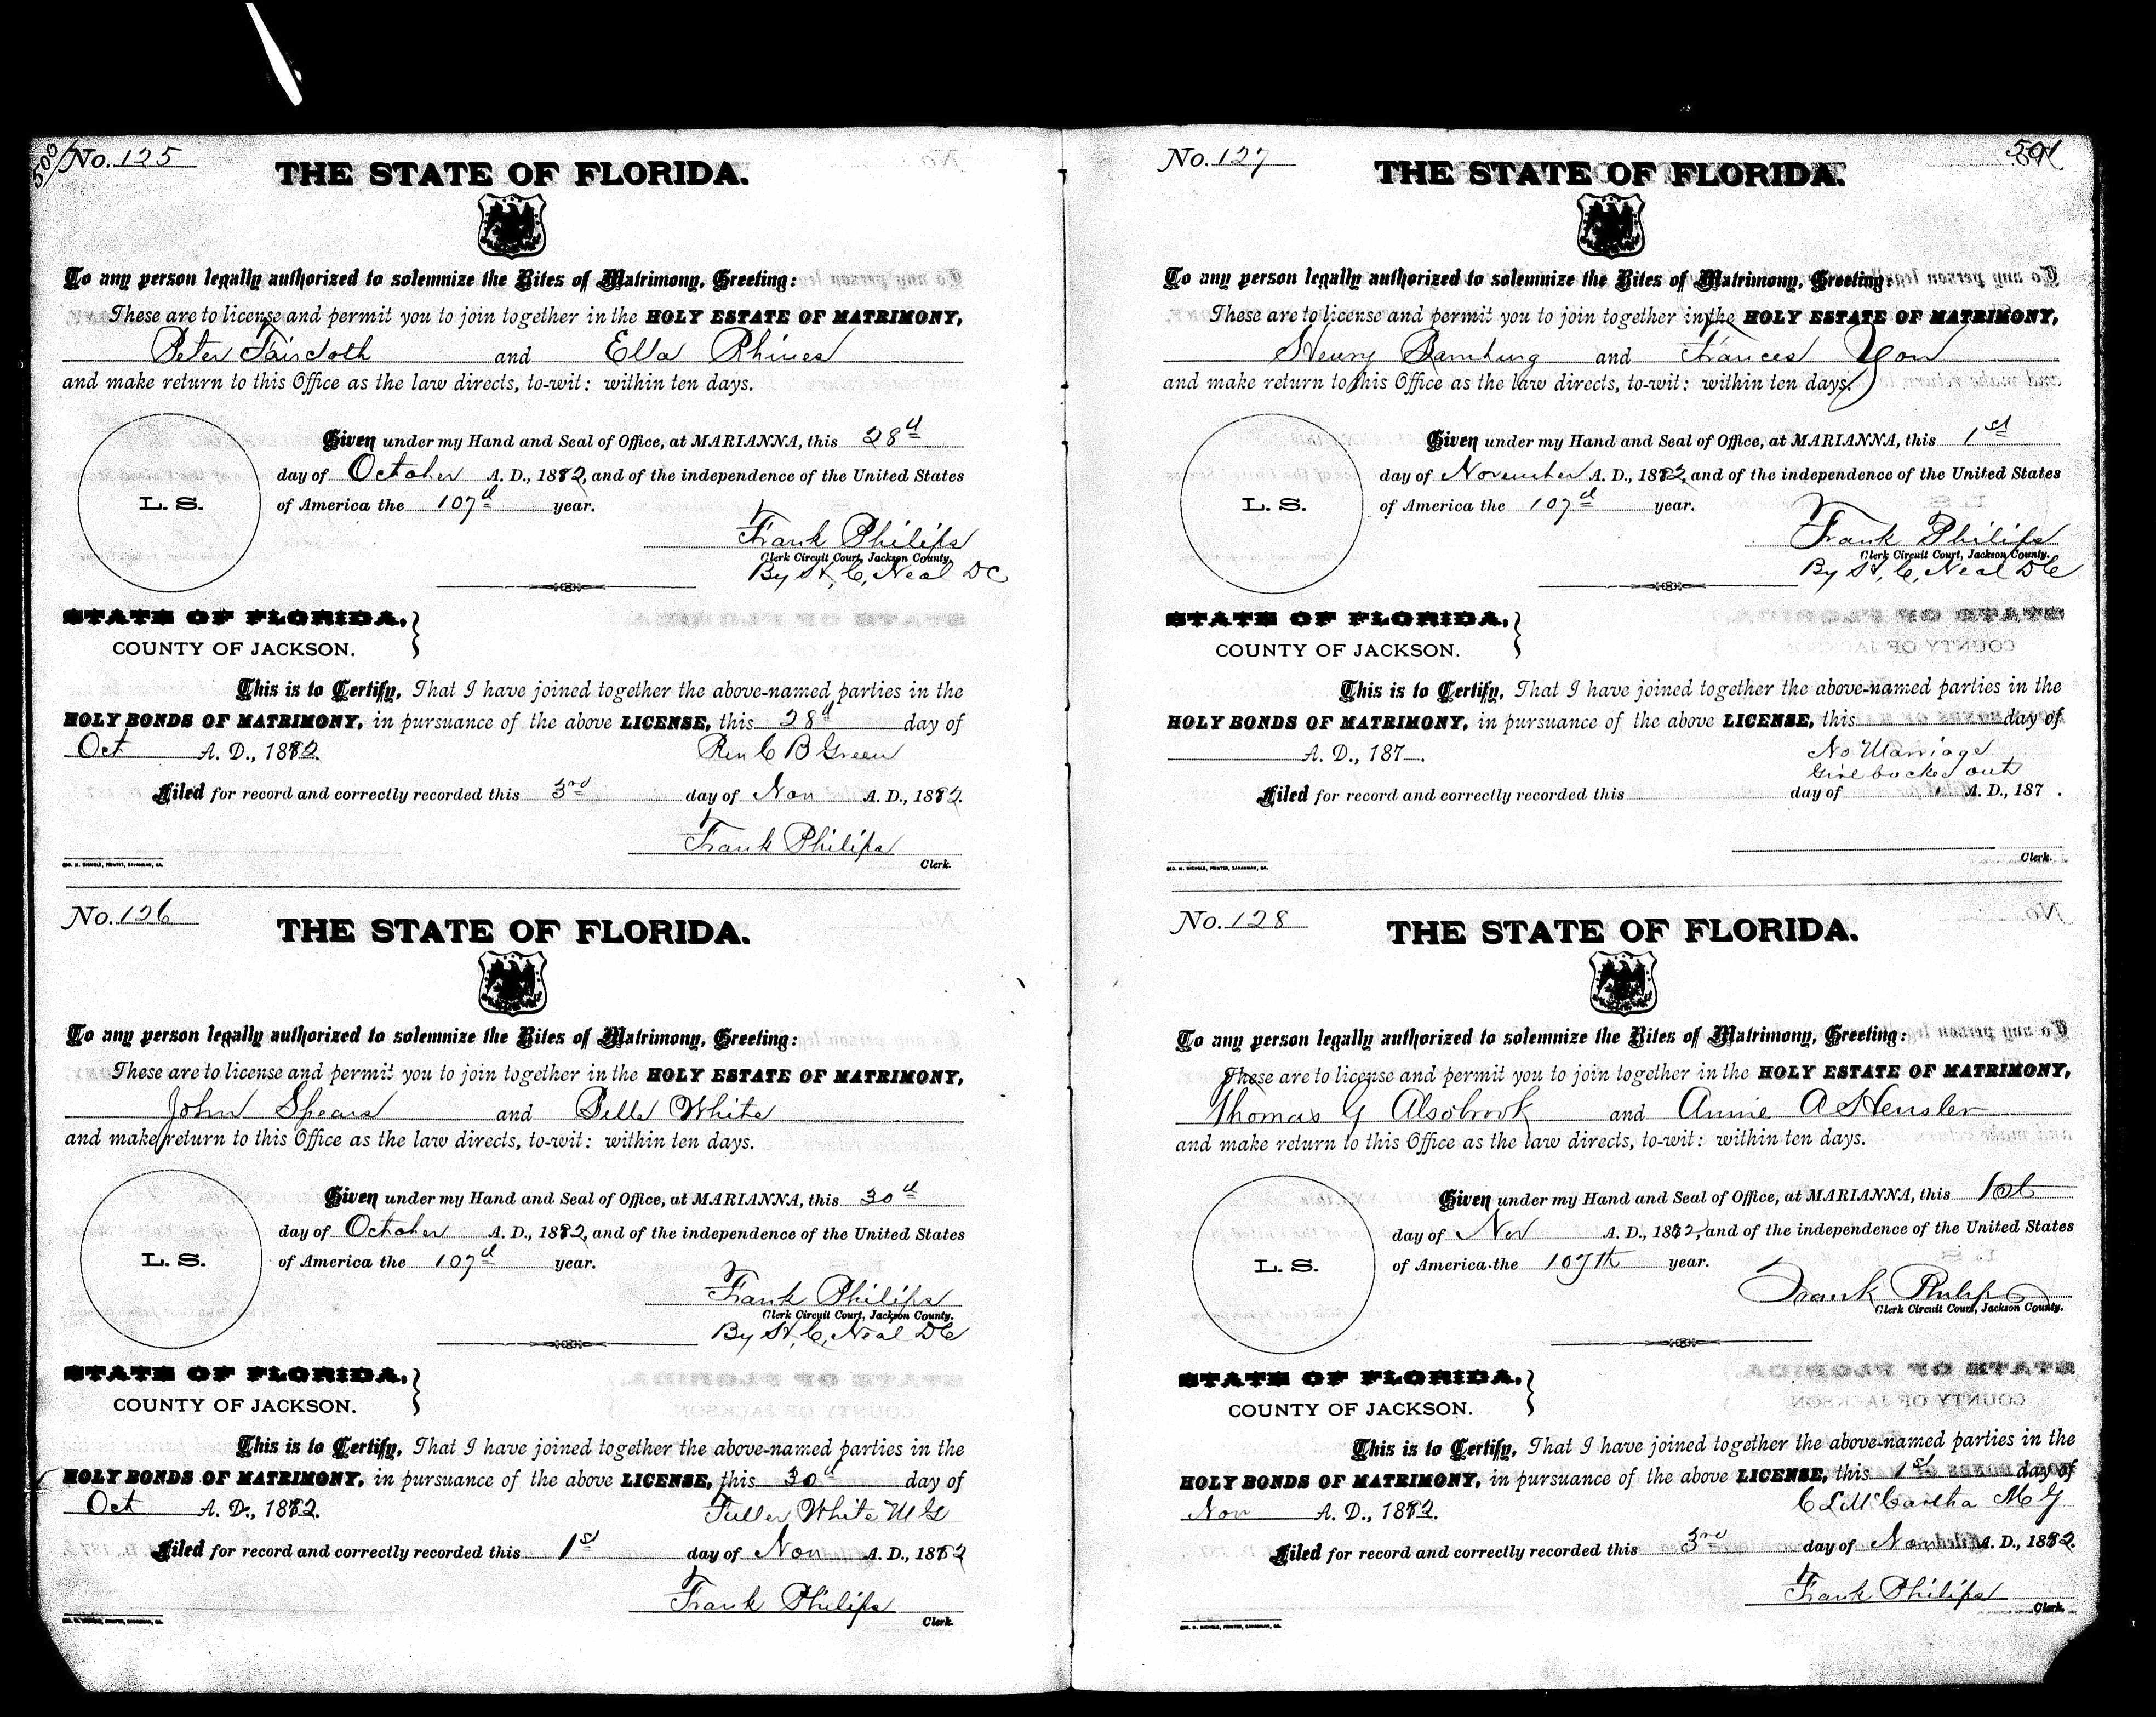 500
No. 125
THE STATE OF FLORIDA.
To any person legally authorized to solemnize the Rites of Matrimony, Greeting:
These are to license and permit you to join together in the HOLY ESTATE OF MATRIMONY,
Peter Faircloth and Ella Rhines
and make return to this Office as the law directs, to-wit: within ten days.
Given under my Hand and Seal of Office, at MARIANNA, this 28d
day of October A. D., 1882, and of the independence of the United States
L. S.
of America the 107d year.
Frank Philips
Clerk Circuit Court, Jackson County.
By St. C. Neal DC
STATE OF FLORIDA,
COUNTY OF JACKSON.
This is to Certify, That I have joined together the above-named parties in the
HOLY BONDS OF MATRIMONY, in pursuance of the above LICENSE, this 28d day of
Oct A. D., 1882.
Rev C B Green
Filed for record and correctly recorded this 3rd day of Nov A. D., 1882.
Frank Philips
Clerk.
GEO. N. NICHOLS, PRINTER, SAVANNAH, GA.
No. 126
THE STATE OF FLORIDA.
To any person legally authorized to solemnize the Rites of Matrimony, Greeting:
These are to license and permit you to join together in the HOLY ESTATE OF MATRIMONY,
John Spears and Bella White
and make return to this Office as the law directs, to-wit: within ten days.
Given under my Hand and Seal of Office, at MARIANNA, this 30d
day of October A. D., 1882, and of the independence of the United States
L. S.
of America the 107d year.
Frank Philips
Clerk Circuit Court, Jackson County.
By St. C. Neal DC
STATE OF FLORIDA,
COUNTY OF JACKSON.
This is to Certify, That I have joined together the above-named parties in the
HOLY BONDS OF MATRIMONY, in pursuance of the above LICENSE, this 30d day of
Oct A. D., 1882.
Fuller White M G
Filed for record and correctly recorded this 1st day of Nov A. D., 1882
Frank Philips
Clerk.
GEO. N. NICHOLS, PRINTER, SAVANNAH, GA.
No. 127
501
THE STATE OF FLORIDA.
To any person legally authorized to solemnize the Rites of Matrimony, Greeting:
These are to license and permit you to join together in the HOLY ESTATE OF MATRIMONY,
Henry Bamburg and Frances Yon
and make return to this Office as the law directs, to-wit: within ten days.
Given under my Hand and Seal of Office, at MARIANNA, this 1st
day of November A. D., 1882, and of the independence of the United States
L. S.
of America the 107d year.
Frank Philips
Clerk Circuit Court, Jackson County.
By St. C. Neal DC
STATE OF FLORIDA,
COUNTY OF JACKSON.
This is to Certify, That I have joined together the above-named parties in the
HOLY BONDS OF MATRIMONY, in pursuance of the above LICENSE, this day of
A. D., 187 .
No Marriage
Girl backed out
Filed for record and correctly recorded this day of A. D., 187 .
Clerk.
GEO. N. NICHOLS, PRINTER, SAVANNAH, GA.
No. 128
THE STATE OF FLORIDA.
To any person legally authorized to solemnize the Rites of Matrimony, Greeting:
These are to license and permit you to join together in the HOLY ESTATE OF MATRIMONY,
Thomas G Alsobrook and Annie A Hensler
and make return to this Office as the law directs, to-wit: within ten days.
Given under my Hand and Seal of Office, at MARIANNA, this 1st
day of Nov A. D., 1882, and of the independence of the United States
L. S.
of America the 107th year.
Frank Philips
Clerk Circuit Court, Jackson County.
STATE OF FLORIDA,
COUNTY OF JACKSON.
This is to Certify, That I have joined together the above-named parties in the
HOLY BONDS OF MATRIMONY, in pursuance of the above LICENSE, this 1st day of
Nov A. D., 1882.
C L McCartha M G
Filed for record and correctly recorded this 3rd day of Nov A. D., 1882.
Frank Philips
Clerk.
GEO. N. NICHOLS, PRINTER, SAVANNAH, GA.